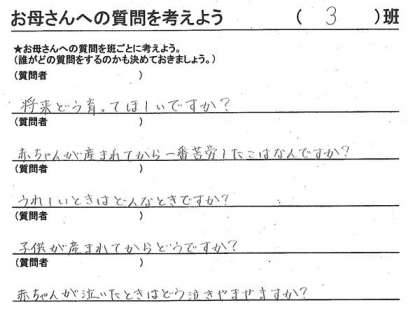 お母さんへの質問を考えよう ( 3 )班
★お母さんへの質問を班ごとに考えよう。
(誰がどの質問をするのかも決めておきましょう。)
(質問者 )
将来どう育ってほしいですか?
(質問者 )
赤ちゃんが産まれてから一番苦労したこはなんですか?
(質問者 )
うれしいときはどんなときですか?
(質問者 )
子供が産まれてからどうですか?
(質問者 )
赤ちゃんが泣いたときはどう泣きやませますか?